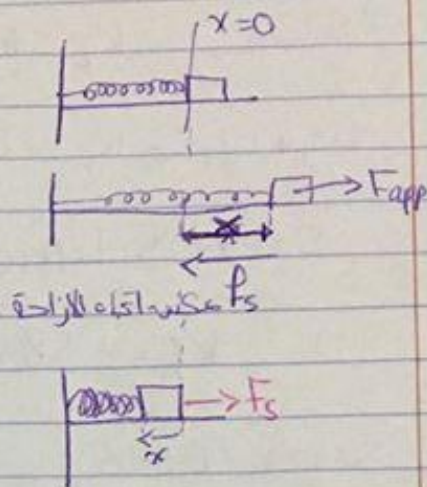 x=0
Fapp
x
fs عكس اتجاه الازاحة
Fs
x